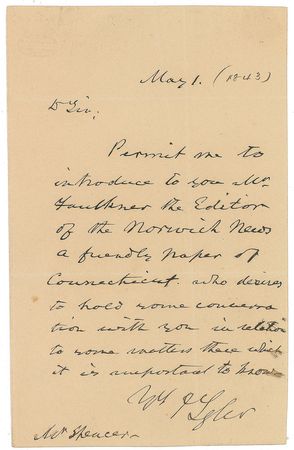 May 1. (1843)
Dr Sir,
Permit me to
introduce to you Mr
Faulkner the Editor
of the Norwich News
a friendly paper of
Connecticut. who desires
to hold some conversa
tion with you in relation
to some matters there which
it is important to know
Yrs J Tyler
Mr Spencer